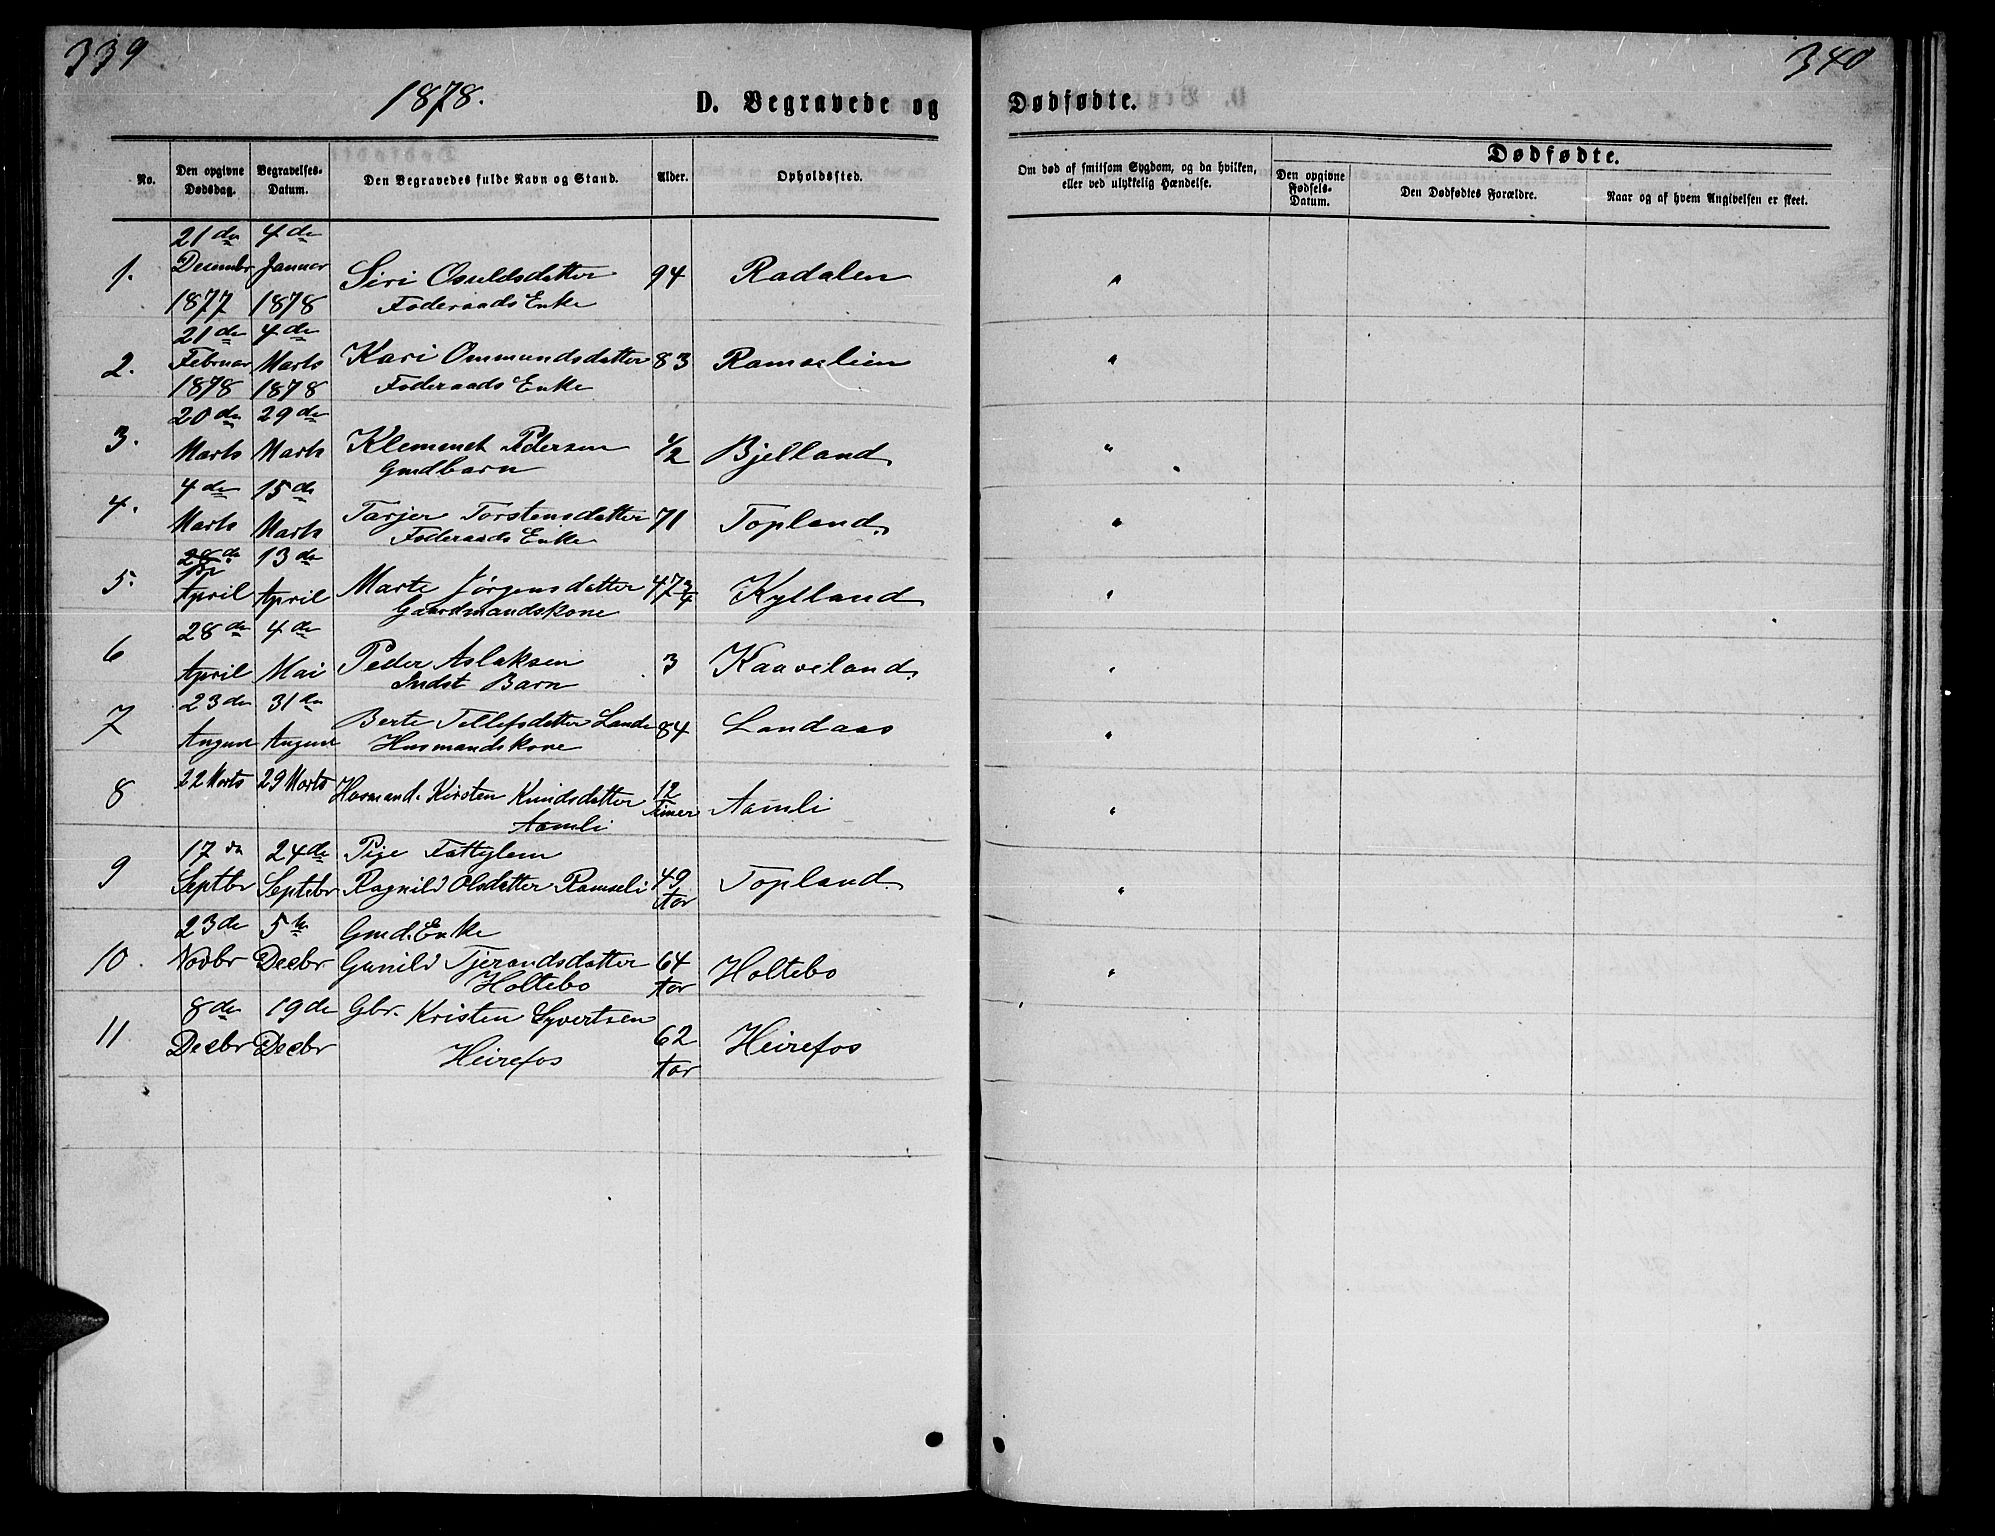 339
340
1878.
D. Begravede og
Dødfødte.
No.
Den opgivne Dødsdag.
Begravelses-Datum.
Den Begravedes fulde Navn og Stand.
Alder.
Opholdssted.
Om død af smitsom Sygdom, og da hvilken, eller ved ulykkelig Hændelse.
Dødfødte.
Den opgivne Fødsels-Datum.
Den Dødfødtes Forældre.
Naar og af hvem Angivelsen er skeet.
21de 4de
1. Decembr Januar Siri Osuldsdatter 94 Radalen "
1877 1878 Føderaads Enke
21de 4de
2. Februar Marts Kari Ommundsdatter 83 Ramseliin "
1878 1878 Føderaads Enke
20de 29de
3. Marts Marts Klemmet Pedersen 1/2 Bjelland "
Gmdbarn
4de 15de
4. Marts Marts Tarjer Torstensdatter 71 Topland "
Føderaads Enke
28de 13de
5. April April Marte Jørgensdatter 47 3/4 Kylland "
Gaardmandskone
28de 4de
6 April Mai Peder Aslaksen 3 Kaaveland "
Indst Barn
23de 31de
7 August August Berte Tellefsdatter Lande 84 Landaas "
Husmandskone
8 22 Marts 29 Marts Husmand. Kirsten Knudsdatter 12 Timer Aamli "
Aamli
17de 24de Pige Fattiglem
9 Septbr Septebr Ragnild Olsdatter Ramseli 49 Aar Topland "
23de 5te Gmd. Enke
10. Novbr Decbr Gunild Tjerandsdatter 64 Aar Holtebo "
Holtebo
8de 19de Gbr. Kristen Syvertsen
11 Decbr Decbr Heirefos 62 Aar Heirefos